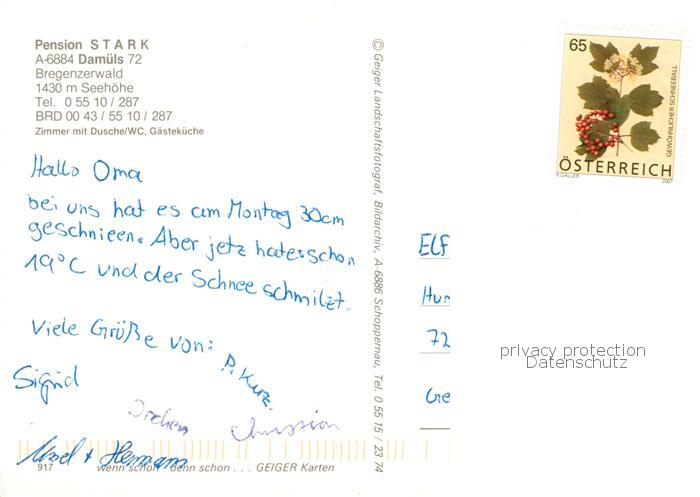 Pension STARK
A-6884 Damüls 72
Bregenzerwald
1430 m Seehöhe
Tel. 0 55 10 / 287
BRD 00 43 / 55 10 / 287
Zimmer mit Dusche/WC, Gästeküche
Hallo Oma
bei uns hat es am Montag 30cm
geschnieen. Aber jetz hat es schon
19°C und der Schnee schmilzt.
Viele Grüße von:
P. Kurz.
Sigrid
Jochen
Christian
Ursel + Hermann
917 wenn schon - denn schon . . . GEIGER Karten
© Geiger Landschaftsfotograf, Bildarchiv, A-6886 Schoppernau, Tel. 0 55 15 / 23 74
65
GEWÖHNLICHER SCHNEEBALL
ÖSTERREICH
2007
ELF
Hum
72
Ge
privacy protection
Datenschutz